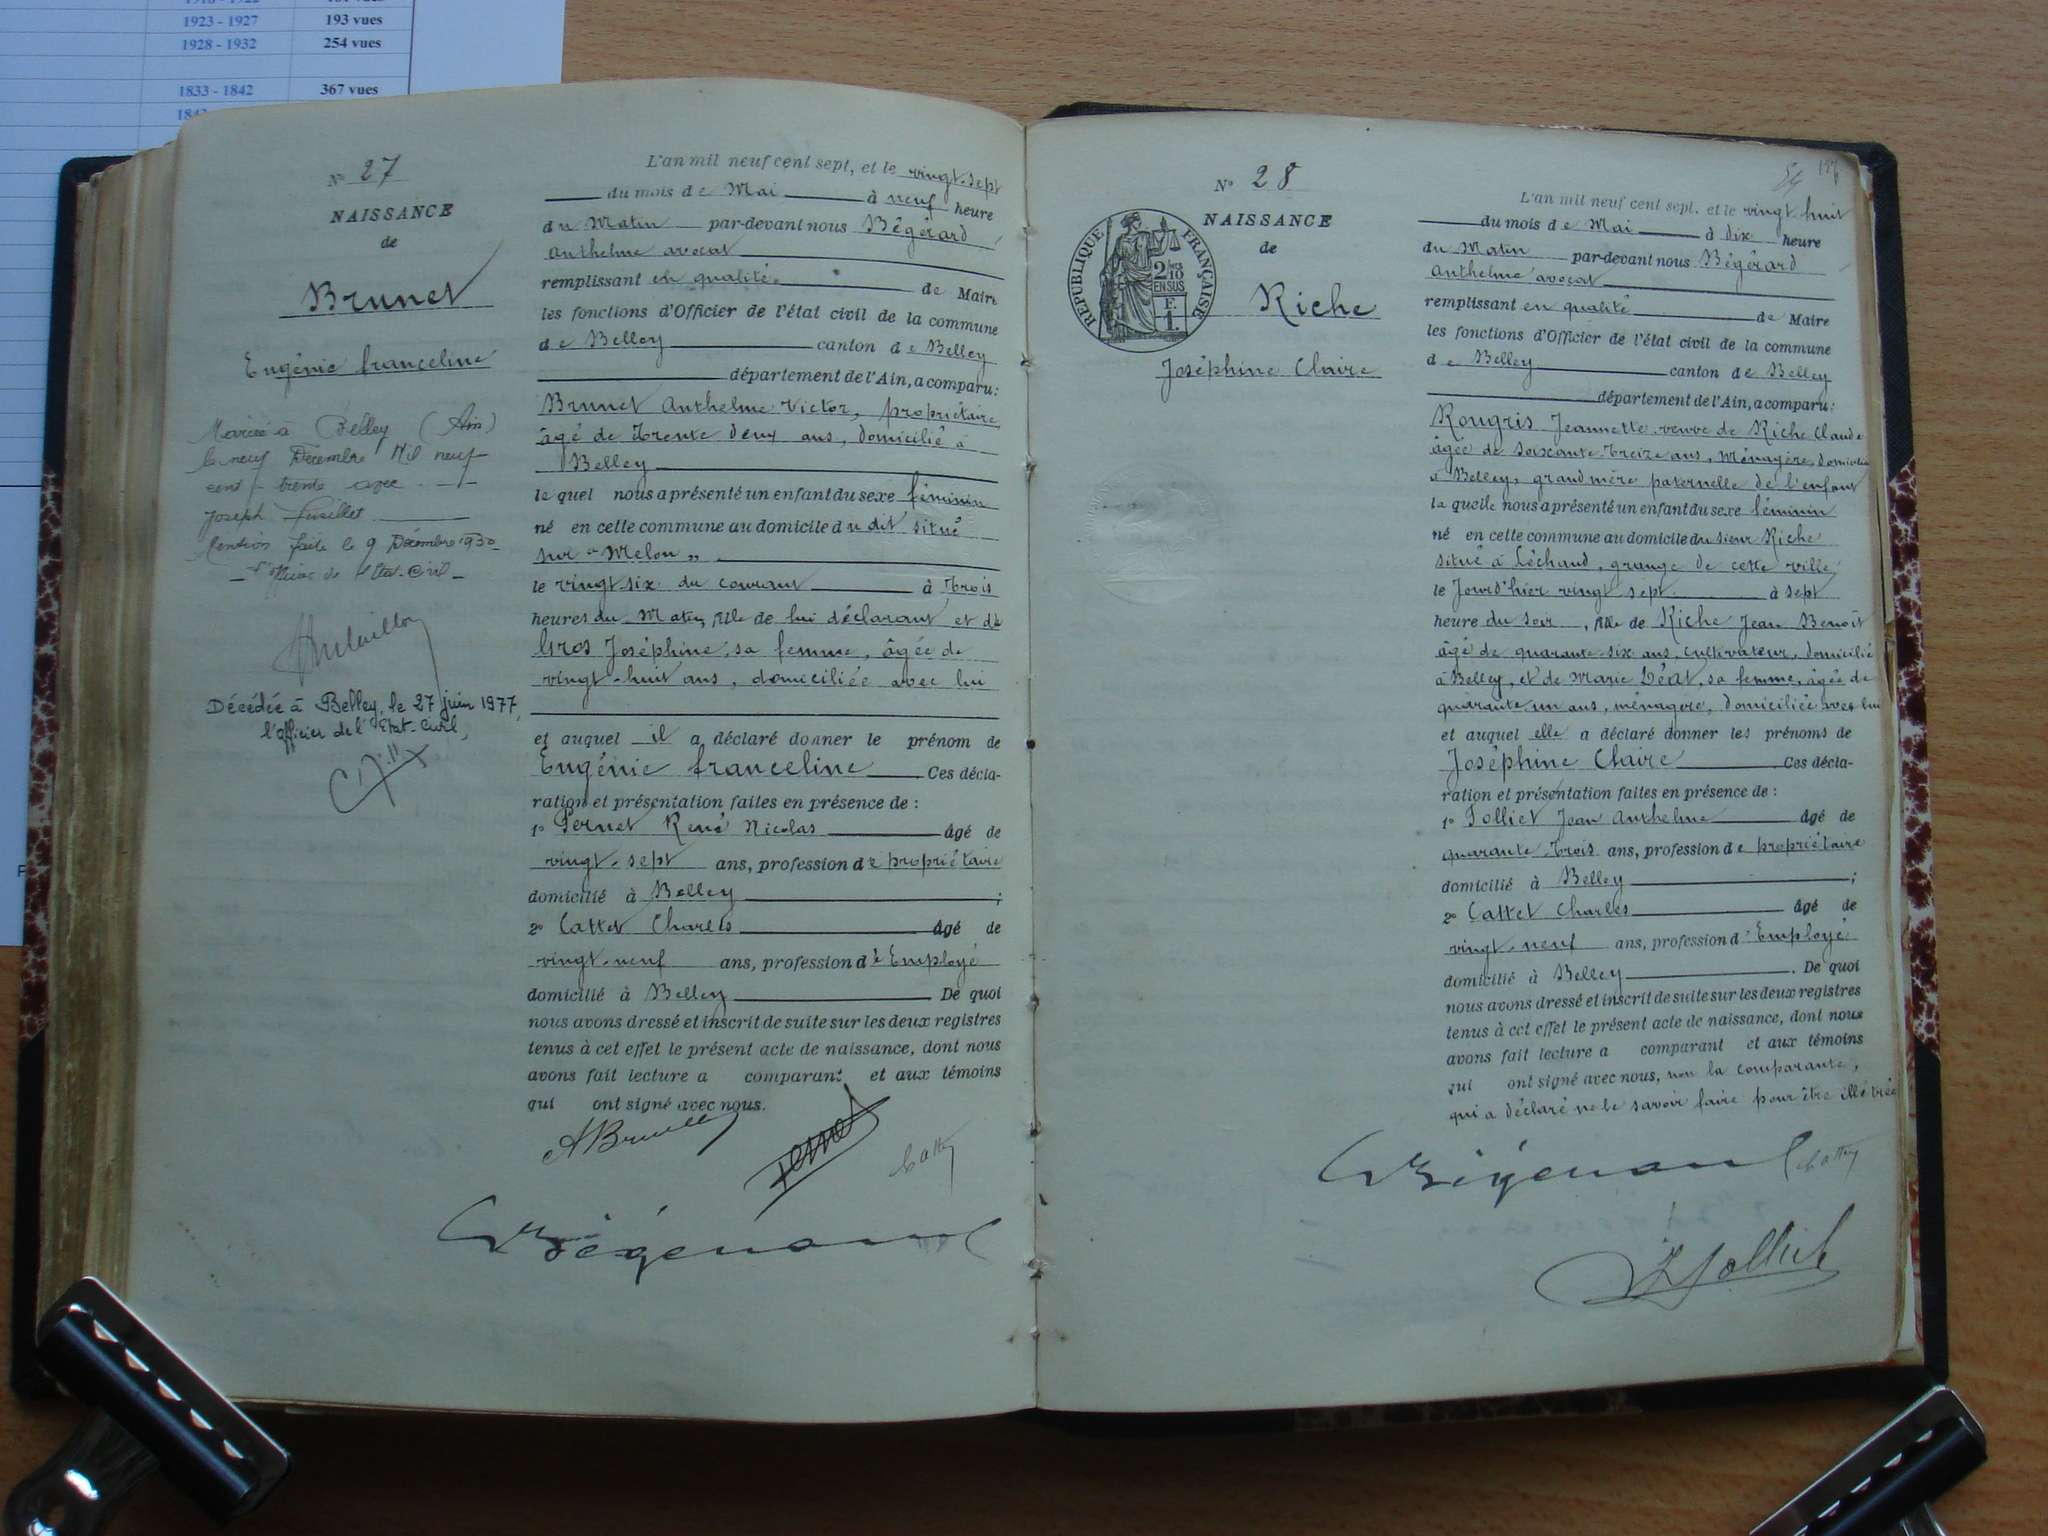 1923 - 1927 193 vues
1928 - 1932 254 vues
1833 - 1842 367 vues
N° 27
NAISSANCE
de
Brunet
Eugénie franceline
Mariée à Belley (Ain)
le neuf Décembre Mil neuf
cent trente avec
Joseph
Mention faite le 9 Décembre 1930
l'officier de l'Etat-Civil
Décédée à Belley, le 27 juin 1977
l'officier de l'Etat-Civil,
L'an mil neuf cent sept, et le vingt-sept
du mois de Mai à neuf heure
du Matin par-devant nous Bégérard
Anthelme avocat
remplissant en qualité de Maire
les fonctions d'Officier de l'état civil de la commune
de Belley canton de Belley
département de l'Ain, a comparu:
Brunet Anthelme Victor, propriétaire
âgé de trente deux ans, domicilié à
Belley
le quel nous a présenté un enfant du sexe féminin
né en cette commune au domicile du dit situé
sur "Melon"
le vingt-six du courant à trois
heures du Matin, fille de lui déclarant et de
Gros Joséphine, sa femme, âgée de
vingt-huit ans, domiciliée avec lui
et auquel il a déclaré donner le prénom de
Eugénie franceline Ces décla-
ration et présentation faites en présence de :
1° Pernet René Nicolas âgé de
vingt-sept ans, profession de propriétaire
domicilié à Belley ;
2° Cattet Charles âgé de
vingt-neuf ans, profession d'Employé
domicilié à Belley De quoi
nous avons dressé et inscrit de suite sur les deux registres
tenus à cet effet le présent acte de naissance, dont nous
avons fait lecture a comparant et aux témoins
qui ont signé avec nous.
ABrunet
Pernet
Cattet
Bégérard
N° 28
NAISSANCE
de
RÉPUBLIQUE FRANÇAISE
2/10
EN SUS
1 F.
Riche
Joséphine Claire
L'an mil neuf cent sept, et le vingt-huit
du mois de Mai à dix heure
du Matin par-devant nous Bégérard
Anthelme avocat
remplissant en qualité de Maire
les fonctions d'Officier de l'état civil de la commune
de Belley canton de Belley
département de l'Ain, a comparu:
Rougris Jeannette veuve de Riche Claude
âgée de soixante-treize ans, ménagère, domiciliée
à Belley, grand mère paternelle de l'enfant
la quelle nous a présenté un enfant du sexe féminin
né en cette commune au domicile du sieur Riche
situé à Léchaud, grange de cette ville,
le Jourd'hier vingt sept à sept
heure du soir, fille de Riche Jean Benoît
âgé de quarante-six ans, cultivateur, domicilié
à Belley, et de Marie Léat, sa femme, âgée de
quarante un ans, ménagère, domiciliée avec lui
et auquel elle a déclaré donner les prénoms de
Joséphine Claire Ces décla-
ration et présentation faites en présence de :
1° Jolliet Jean Anthelme âgé de
quarante-trois ans, profession de propriétaire
domicilié à Belley ;
2° Cattet Charles âgé de
vingt-neuf ans, profession d'Employé
domicilié à Belley. De quoi
nous avons dressé et inscrit de suite sur les deux registres
tenus à cet effet le présent acte de naissance, dont nous
avons fait lecture a comparant et aux témoins
qui ont signé avec nous, non la comparante,
qui a déclaré ne le savoir faire pour être illétrée
Bégérard
Cattet
Jolliet